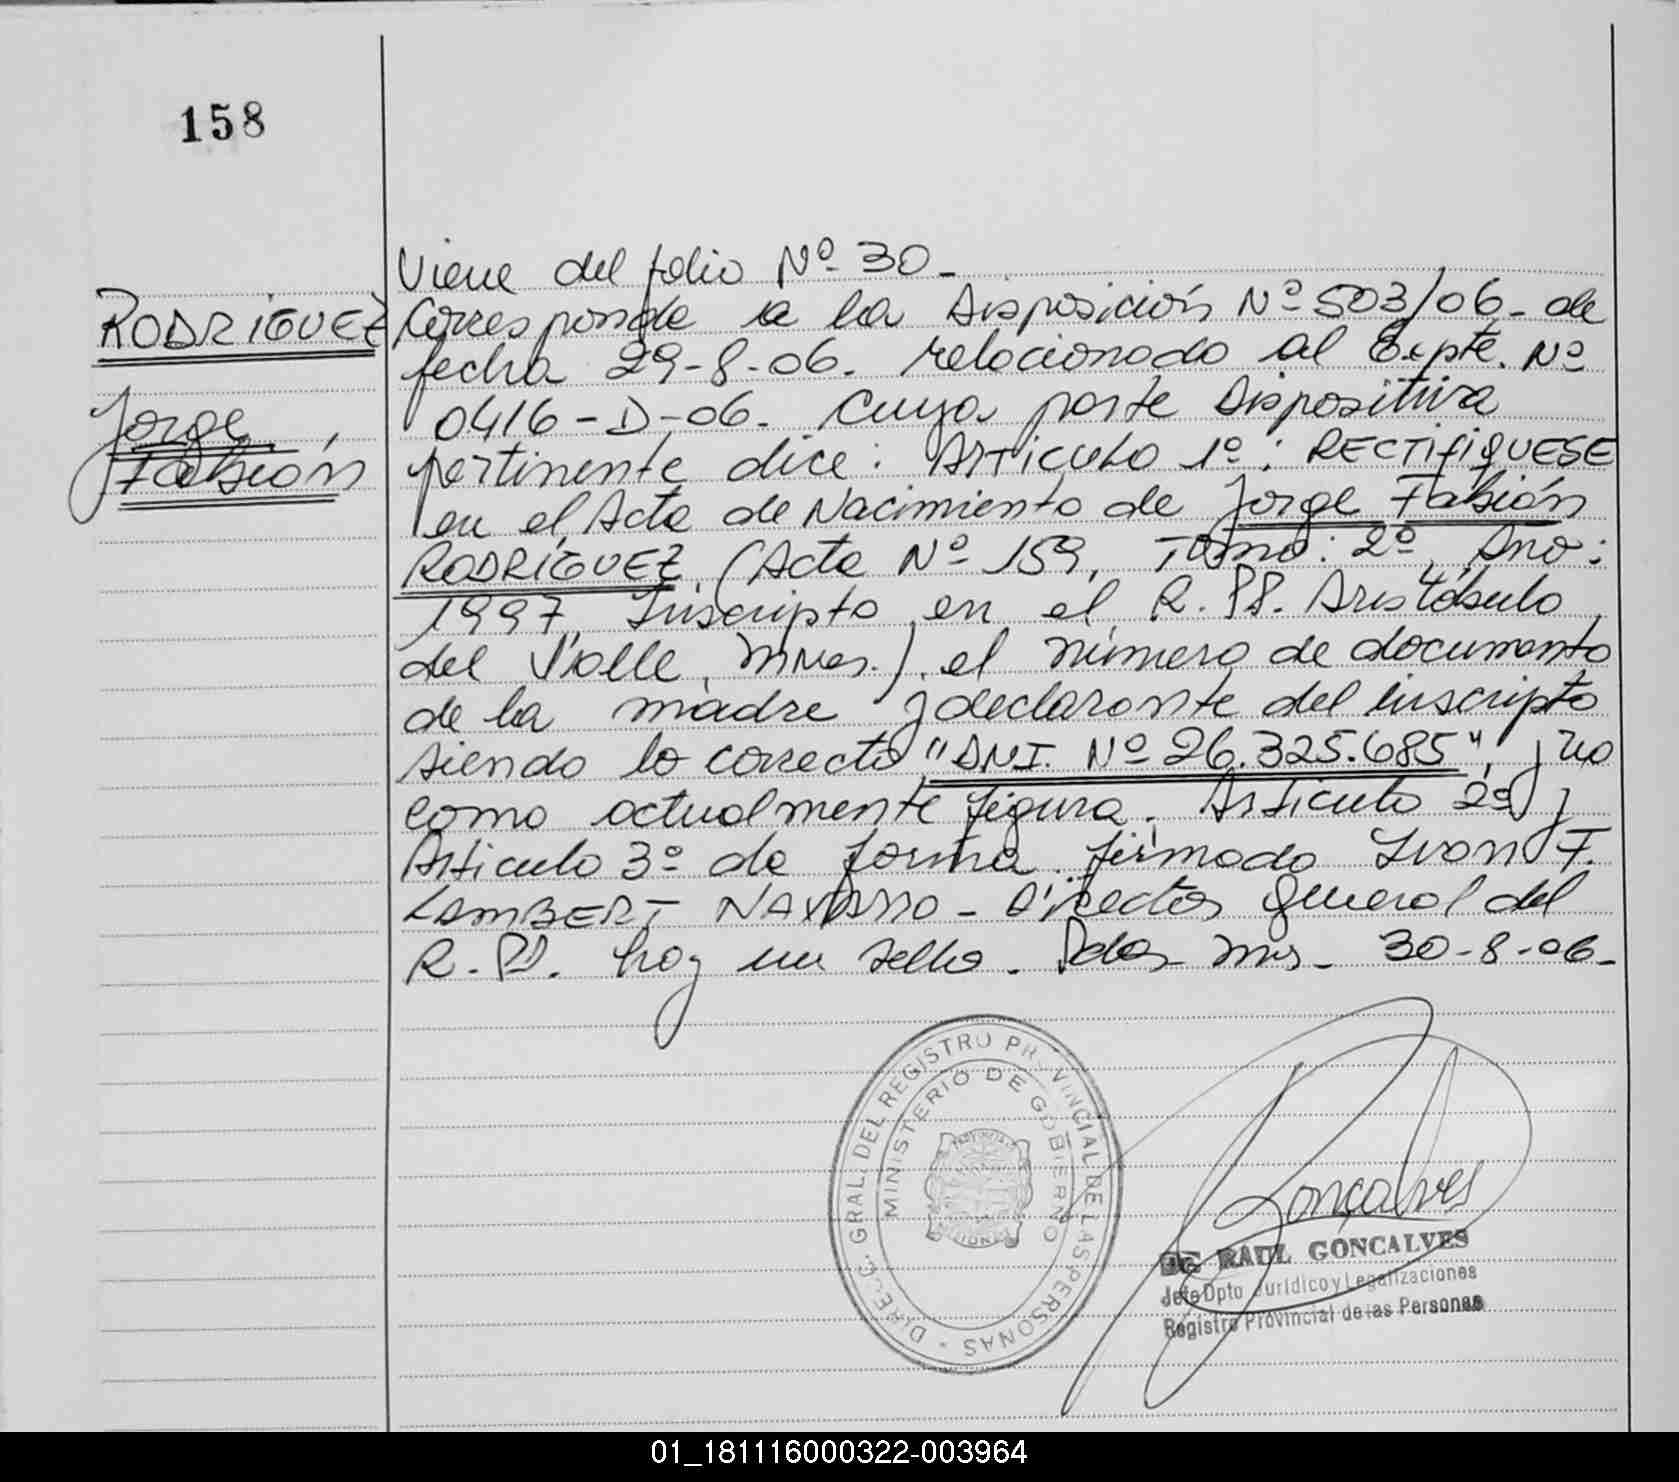 158
RODRÍGUEZ
Jorge
Fabián
Viene del folio Nº 30-
Corresponde a la Disposición Nº 503/06- de
fecha 29-8-06. relacionado al Expte. Nº
0416-D-06. Cuya parte Dispositiva
pertinente dice: Artículo 1º: RECTIFIQUESE
en el Acta de Nacimiento de Jorge Fabián
RODRÍGUEZ, (Acta Nº 159, Tomo: 2º, Año:
1997, Inscripto en el R.PP. Aristóbulo
del Valle, Mnes.), el número de documento
de la madre y declarante del inscripto
siendo lo correcto "DNI. Nº 26.325.685", y no
como actualmente figura. Artículo 2º y
Artículo 3º de forma. firmado Ivon F.
LAMBERT NAVARRO - Director General del
R.PP. hay un sello. Pdas Mns- 30-8-06-
DIREC. GRAL. DEL REGISTRO PROVINCIAL DE LAS PERSONAS
MINISTERIO DE GOBIERNO
PROVINCIA
MISIONES
Gonçalves
RAUL GONCALVES
Jefe Dpto Jurídico y Legalizaciones
Registro Provincial de las Personas
01_181116000322-003964